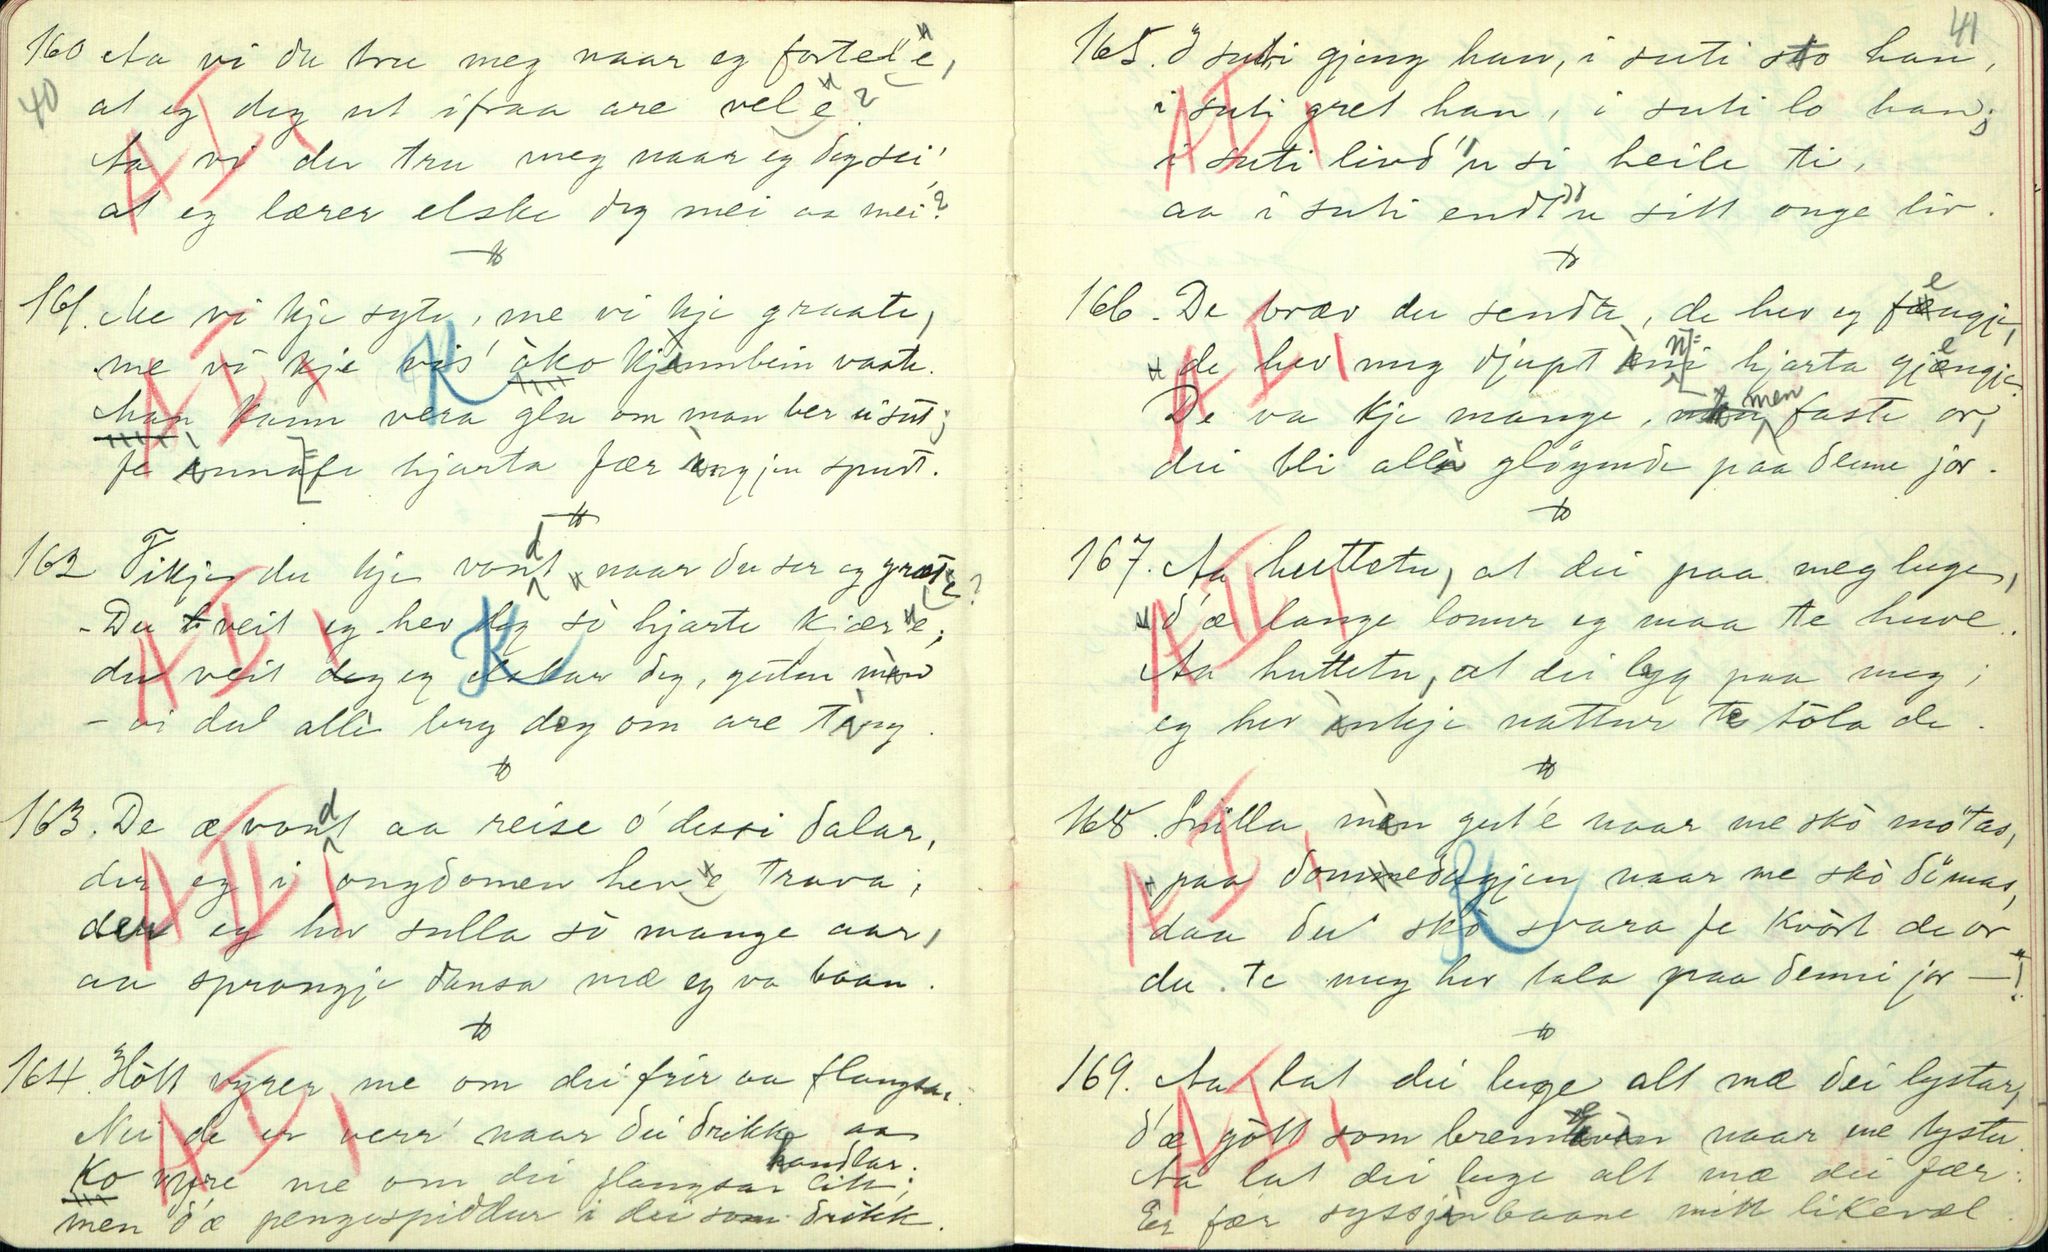 40
160 Aa vi du tru meg naar eg fortel'e,
at eg deg ut ifraa are vel'e?
Aa vi du tru meg naar eg deg sei',
at eg lærer elske deg mei aa mei?
161. Me vi kje syte, me vi kje graate,
me vi kje vis' òko kjinnbein vaate.
Man kann vera gla om man ber ei sut;
fe innafe hjarta fær ingjen spurt.
162 Tikje du kje vondt naar du ser eg græte?
- Du veit eg hev deg så hjarte kjær'e;
du veit eg elskar deg, guten min
- vi dul alli bry deg om are ting.
163. De æ vondt aa reise o' dessi dalar,
der eg i ongdomen hev'e trava;
der eg hev sulla sò mange aar,
aa sprongje dansa mæ eg va baan.
164. Hòtt vyrer me om dei frir aa flangsar.
Nei de er verr' naar dei drikke aa handlar.
Ko vyre me om dei flangsar litt;
men d'æ pengespiddur i dei som drikk.
41
165. I suti gjeng han, i suti sto han,
i suti gret han, i suti lo han;
i suti livd'n si heile ti,
aa i suti endt'n sitt onge liv.
166. De bræv du sendte, de hev eg fengje,
de hev meg djupt inni hjarta gjengje.
De va kje mange, men faste or,
dei bli alli gløymde paa denne jor.
167. Aa huttetu, at dei paa meg luge,
d'æ lange lomer eg maa te huve.
Aa huttetu, at dei lyg paa meg;
eg hev inkje nattur te tòla de.
168. Snilla min gut'e naar me skò møtas,
paa dommedagjen naar me skò dømas,
daa du skò svara fe kvòrt de or
du te meg hev tala paa denni jor —!
169. Aa lat dei luge alt mæ dei lystar,
d'æ gòtt som brennevin naar me tyster.
Aa lat dei luge alt mæ dei fær:
Eg fær syssjinbaane mitt likevæl.